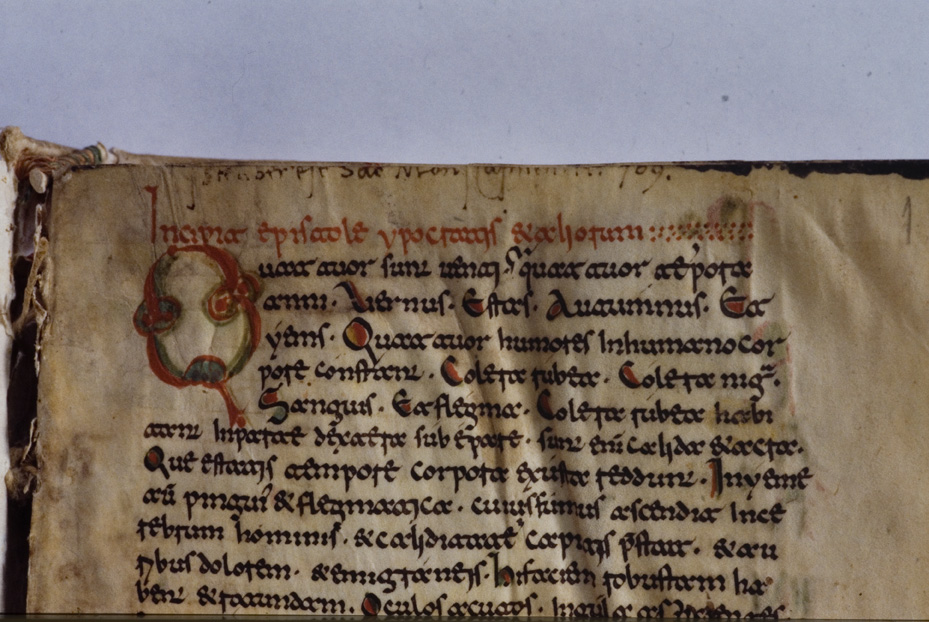 Incipit epistole ypocratis & aliorum
Quattuor sunt uenti. quattuor tēpora
anni. Vernus. Estas. Autumnus. Et
yems. Quattuor humores Inhumano cor
pore constant. Colera rubea. Colera nigra.
Sanguis. Et flegma. Colera rubea habi
tant Inparte dextra sub epate. sunt enī calida & acra.
Que estatis tempore corpora reddunt. Inyeme
aū pingui & flegmatica. ascendit Ince
rebrum hominis. & caliditate capitis pstat. & au
ribus dolorem. & emigraneis. Infaciem robustam ha
bent & iracundam. Oculos acutos.
1